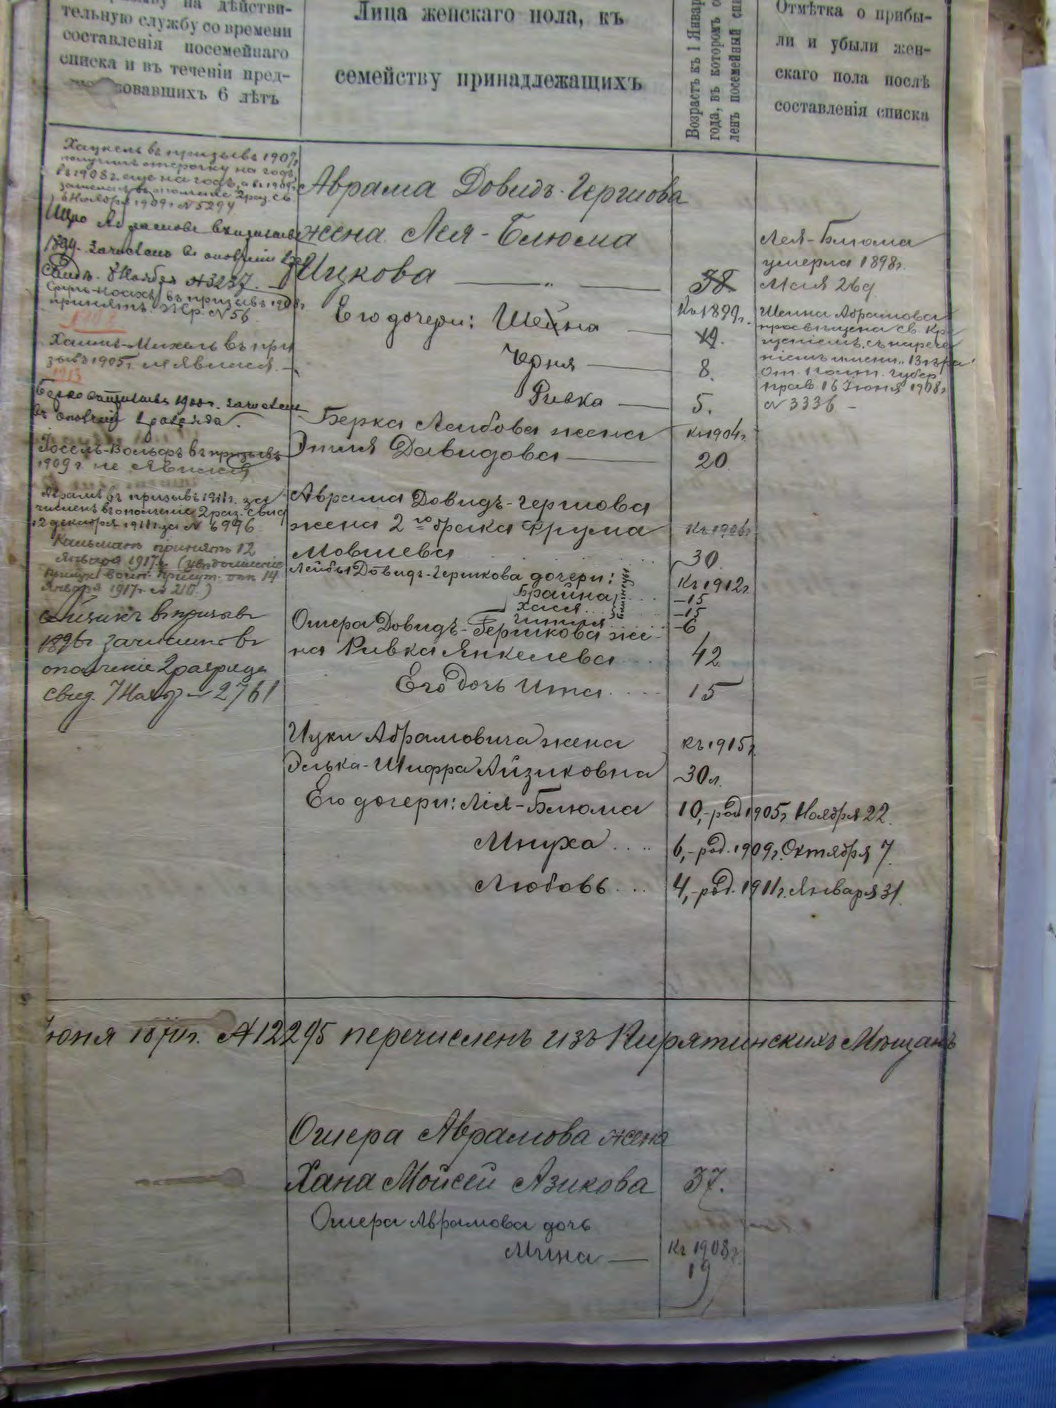 на дѣйстви-
тельную службу со времени
составленія посемейнаго
списка и въ теченіи пред-
овавшихъ 6 лѣтъ
Лица женскаго пола, къ
семейству принадлежащихъ
Возрастъ къ 1 Январ
года, въ которомъ с
ленъ посемейный спи
Отмѣтка о прибы-
ли и убыли жен-
скаго пола послѣ
составленія списка
Хацкель въ призывъ 1907г.
получилъ отсрочку на годъ,
въ 1908г. еще на годъ, а въ 1909г.
зачисленъ въ ополченіе 2 раз. св.
Ноября 1909г. № 5294
зачисленъ въ ополченіе
Свид. 8 Ноября № 3237.
въ призывъ 1908г.
принятъ. № 56
Хаимъ-Михель въ при
зывъ 1905г. не явился. —
1913
въ ополченіе 2 разряда.
Іоссель-Вольфъ въ призывъ
1909г. не явился
Абрамъ въ призывъ 1911г. за
численъ въ ополченіе 2 раз. свид
12 декабря 1911г. за № 6996
Кальманъ принятъ 12
Января 1917г. (увѣдомленіе
воин. прису. отъ 14
Января 1917г. № 210.)
Айзикъ въ призывъ
1896г. зачисленъ въ
ополченіе 2 разряда
свид. 7 Нояб. № 2761
Аврама Довидъ-Гершова
жена Лея-Блюма
Ицкова — „ — 38
Его дочери: Шейна — 19.
Къ 1899г.
Черня — 8.
Ривка — 5.
Берка Лейбова жена Къ 1904г.
Этля Давидова — 20
Аврама Довидъ-Гершова
жена 2го брака Фрума Къ 1906г.
Мовшева 30
Лейбы Довидъ-Гершкова дочери: Къ 1912г.
Брайна — 15
Хася — 15
— 6
Ошера Довидъ-Гершкова же-
на Ривка Янкелева 42
Его дочь Ита 15
Ицки Абрамовича жена Къ 1915г.
Элька-Шифра Айзиковна 30л.
Его дочери: Лія-Блюма 10,—род. 1905г. Ноября 22.
Мнуха 6,—род. 1909г. Октября 7.
Любовь 4,—род. 1911г. Января 31.
Лея-Блюма
умерла 1898г.
Мая 26д.
Шейна Абрамова
просвѣщена св. Кре
щеніемъ, съ нарече
ніемъ имени
От. Полт. Губер.
прав. 16 Іюня 1908г.
№ 3336 —
Іюня 1870г. № 12295 перечисленъ изъ Пирятинскихъ Мѣщанъ
Ошера Аврамова жена
Хана Мойсей Азикова 37.
Ошера Аврамова дочь
Мина — Къ 1908г.
19